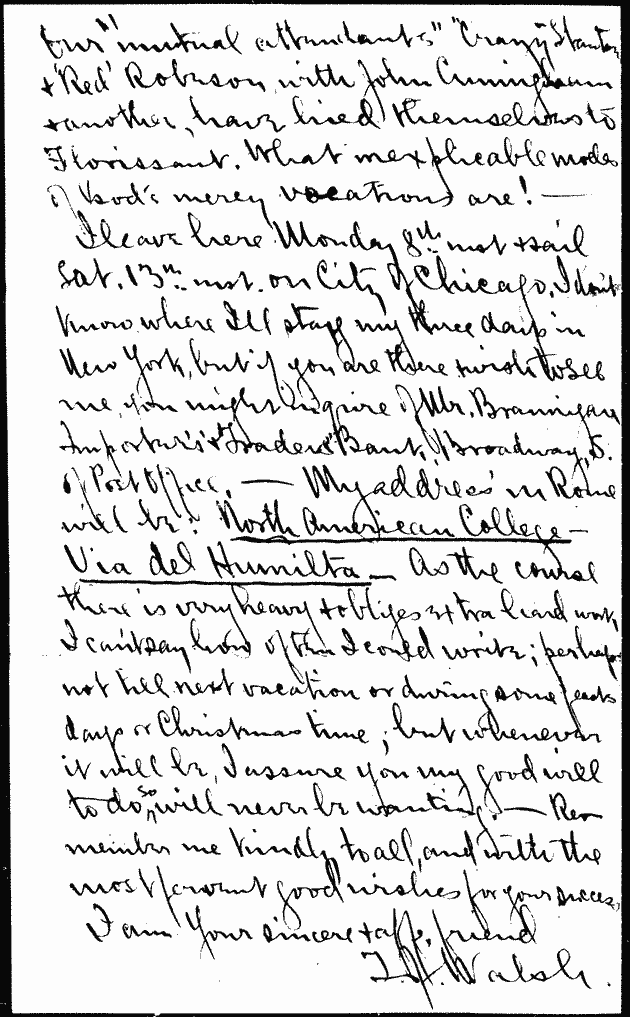 our "mutual attendants," "Crazy" Stanton
& "Red" Robeson, with John Cuningham
& another, have hied themselves to
Florissant. What inexplicable modes
of God's mercy vocations are! —
I leave here Monday 8th inst & sail
Sat. 13th inst. on City of Chicago. I don't
know where I'll stay my three days in
New York, but if you are there & wish to see
me, you might inquire of Mr. Brannigan
Importer's & Traders' Bank, Broadway, S.
of Post Office. — My address in Rome
will be: North American College —
Via del Humilta — As the course
there is very heavy & obliges extra hard work,
I can't say how often I could write; perhaps
not till next vacation or during some feast
days or Christmas time; but whenever
it will be, I assure you my good will
to do so, will never be wanting. — Re-
member me kindly to all, and with the
most fervent good wishes for your success,
I am Your sincere & aff. friend
Walsh.